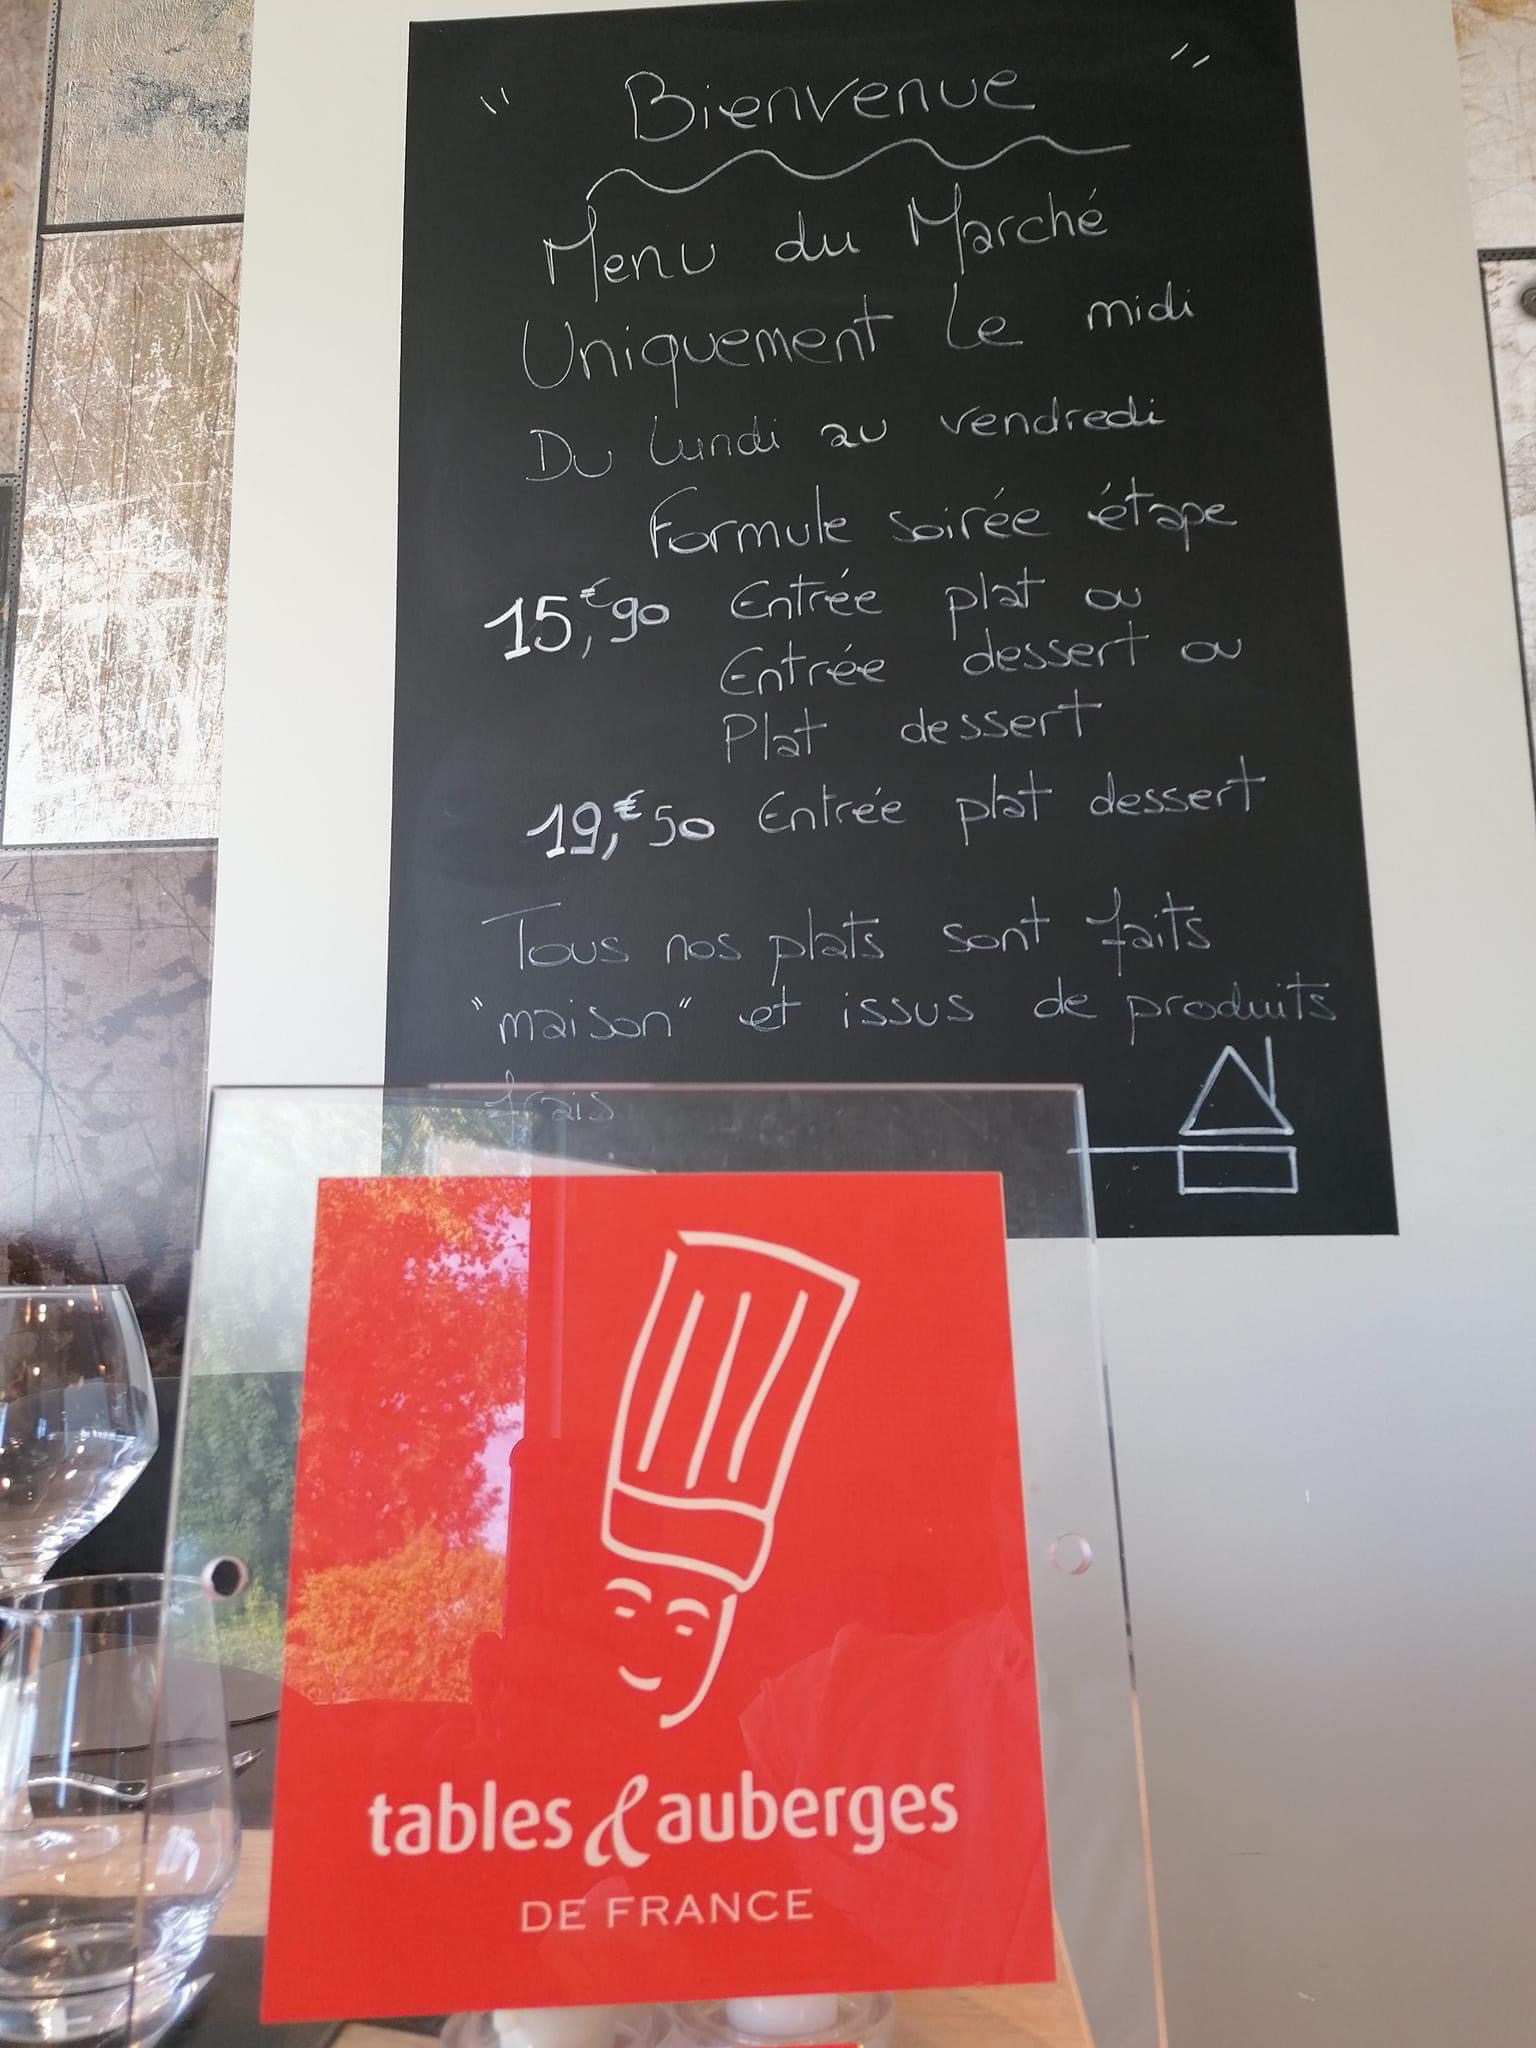 " Bienvenue "
Menu du Marché
Uniquement Le midi
Du lundi au vendredi
Formule soirée étape
15,€90 Entrée plat ou
Entrée dessert ou
Plat dessert
19,€50 Entrée plat dessert
Tous nos plats sont faits
"maison" et issus de produits
frais
tables & auberges
DE FRANCE